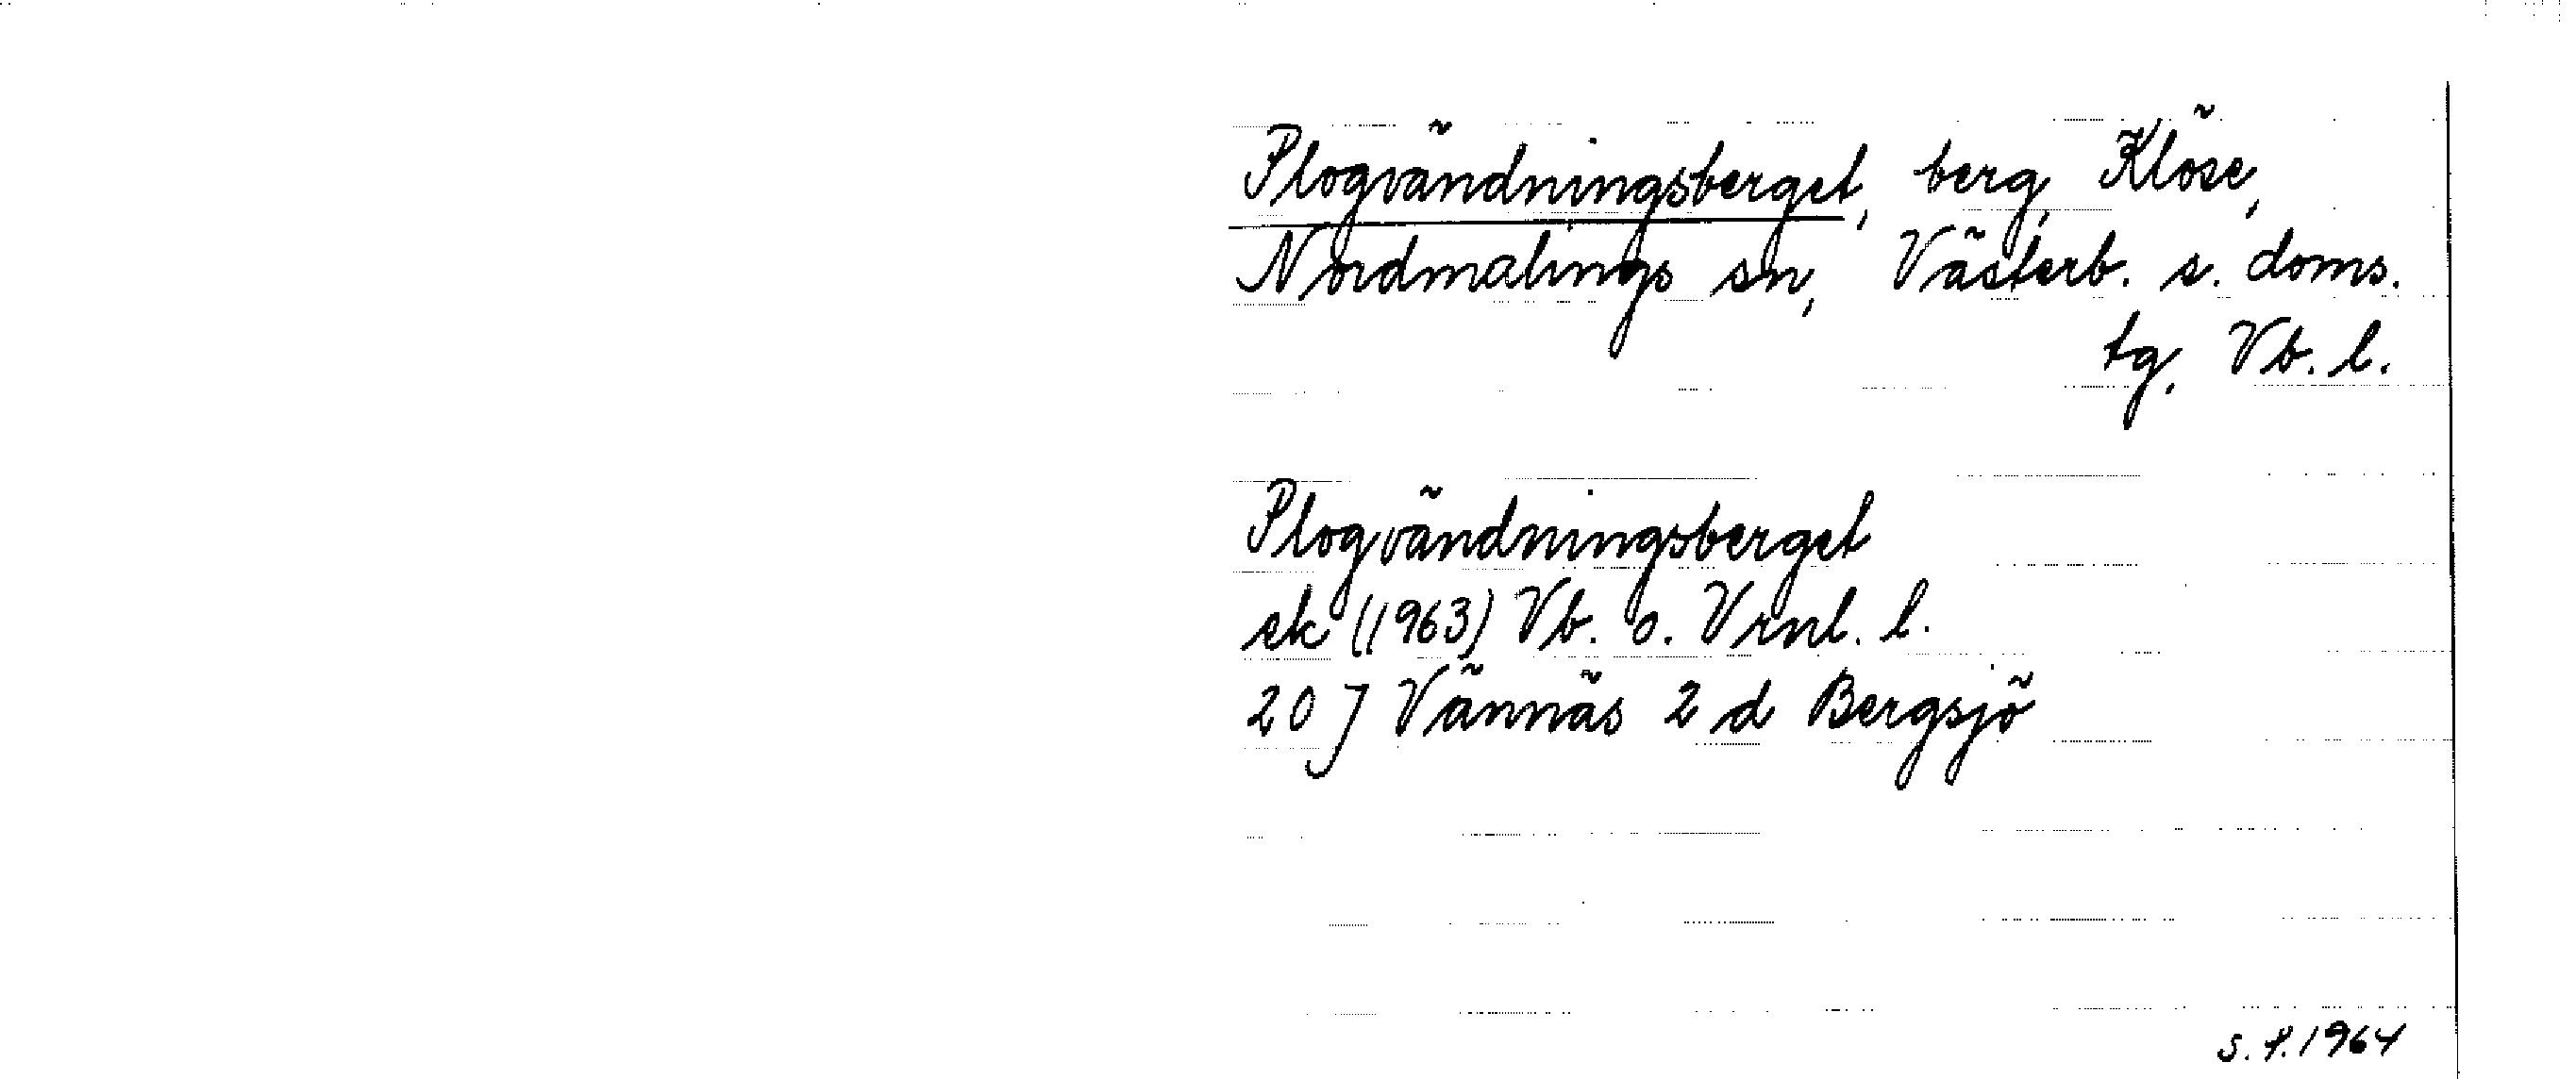 Plogvändningsberget, berg, Klöse,
Nordmalings sn, Västerb. s. doms.
tg, Vb. l.
Plogvändningsberget
ek (1963) Vb. o. Vrnl. l.
20 J Vännäs 2 d Bergsjö
s. f. 1964